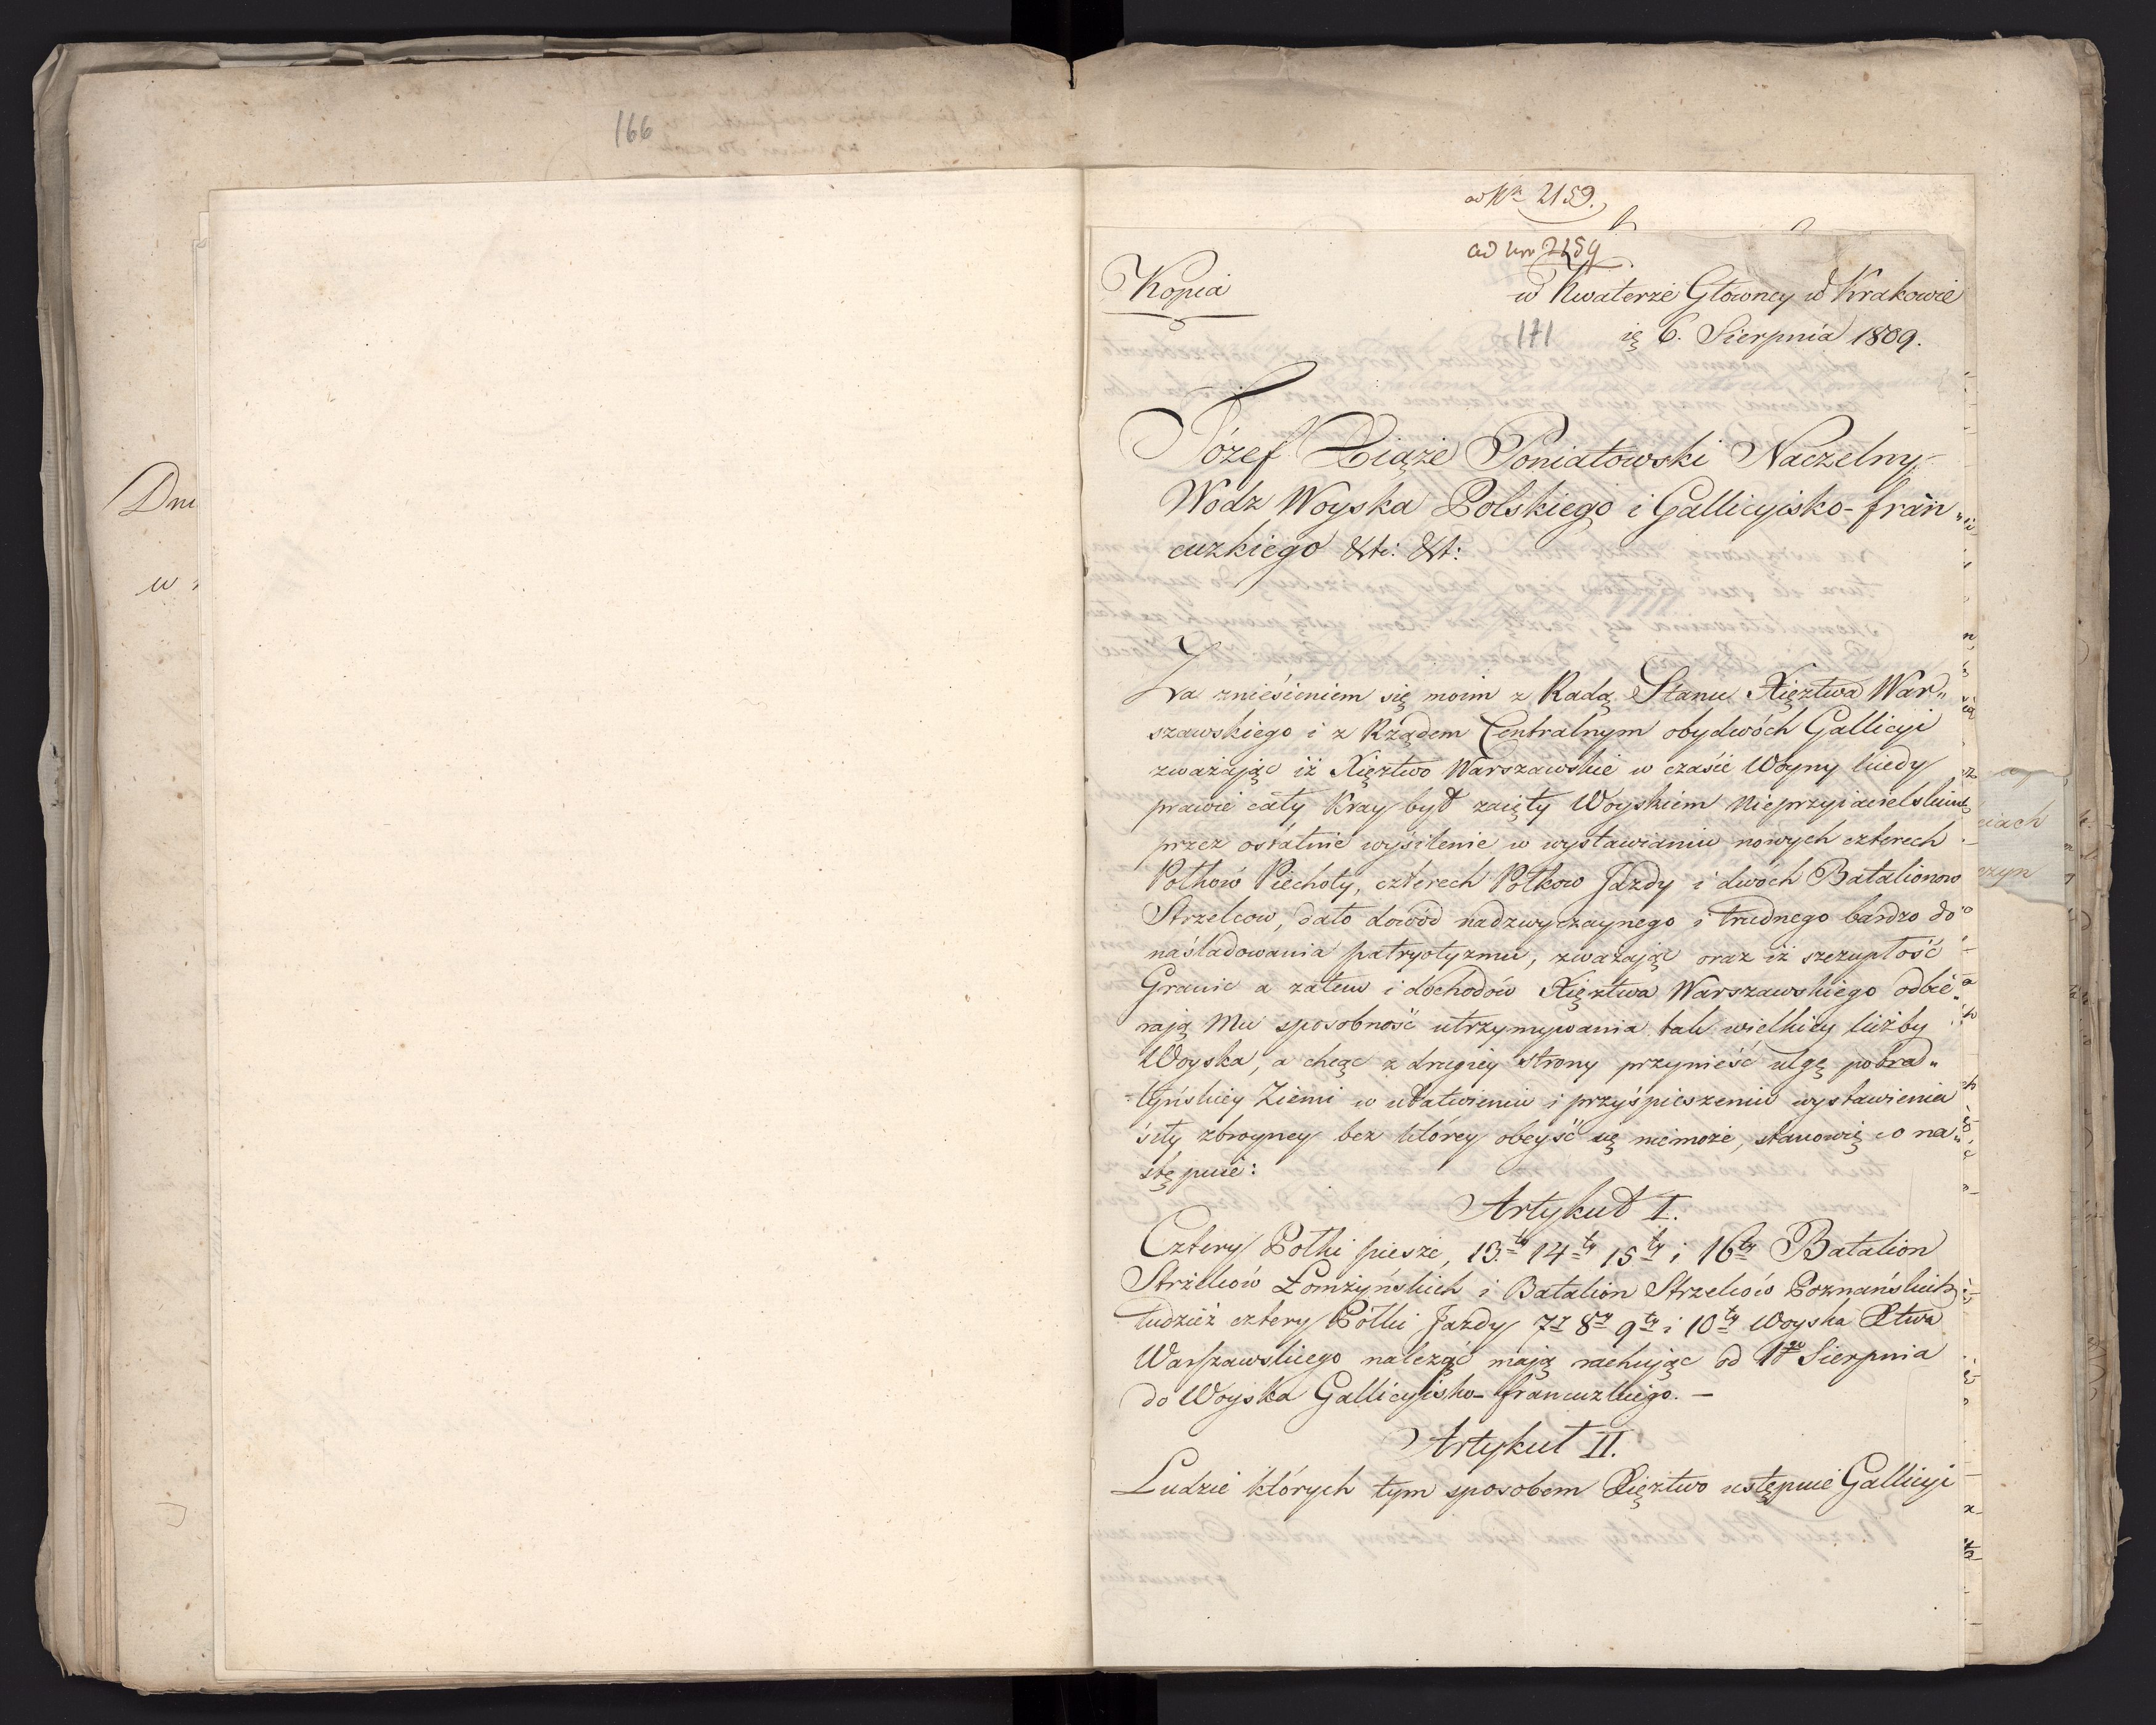 166
ad Nr 2159.
ad Nro 2159
Kopia
w Kwaterze Główney w Krakowie
171
6. Sierpnia 1809.
Józef Xiąże Poniatowski Naczelny
Wodz Woyska Polskiego i Gallicyisko-fran„
cuzkiego &t: &t:
Za znieśieniem się moim z Radą Stanu Xięztwa War„
szawskiego i z Rządem Centralnym obydwóch Gallicyi
zważając iż Xięztwo Warszawskie w czaśie Woyny kiedy
prawie cały Kray był zaięty Woyskiem Nieprzyiacielskim
przez ostatnie wyśilenie w wystawianiu nowych czterech
Połków Piechoty, czterech Połkow Jazdy i dwóch Batalionow
Strzelcow, dało dowód nadzwyczaynego i trudnego bardzo do
naśladowania patryotyzmu, zważając oraz iż szczupłość
Granic a zatem i dochodów Xięztwa Warszawskiego odbie„
rają Mu sposobność utrzymywania tak wielkiey liczby
Woyska, a chcąc z drugiey strony przynieść ulgę pobra„
tyńskiey Ziemi w ułatwieniu i przyśpieszeniu wystawienia
śiły zbroyney bez którey obeyść się niemoże, stanowię co na„
stępuie:
Artykuł I.
Cztery Połki piesze, 13.ty 14ty 15ty i 16ty Batalion
Strzelców Łomżyńskich i Batalion Strzelców Poznańskich
tudzież cztery Półki Jazdy 7y 8y 9ty i 10ty Woyska Xtwa
Warszawskiego należąć mają rachując od 1go Sierpnia
do Woyska Gallicyisko-francuzkiego. —
Artykuł II.
Ludzie których tym sposobem Xięztwo ustępuie Gallicyi